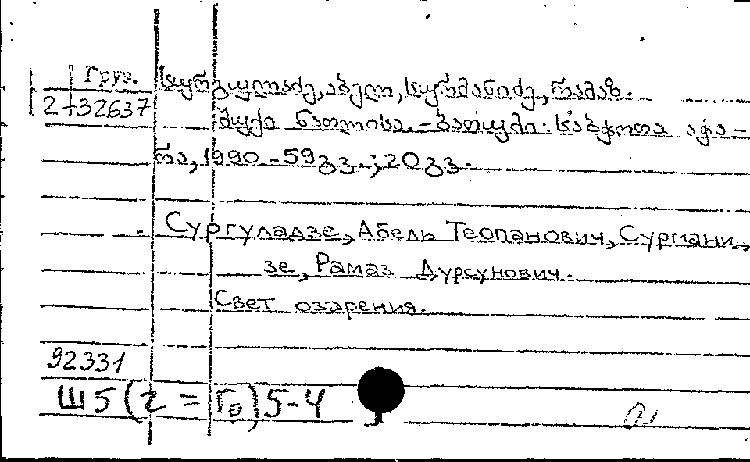 Груз. სურგულაძე, აბელ, სურმანიძე, რამაზ.
2-32637
შუქი ნათლისა. - ბათუმი: საბჭოთა აჭა-
რა, 1990. - 59გვ.; 20გვ.
Сургуладзе, Абель Теопанович, Сурмани,
зе, Рамаз Дурсунович.
Свет озарения.
92331
Ш5(2=Го)5-4